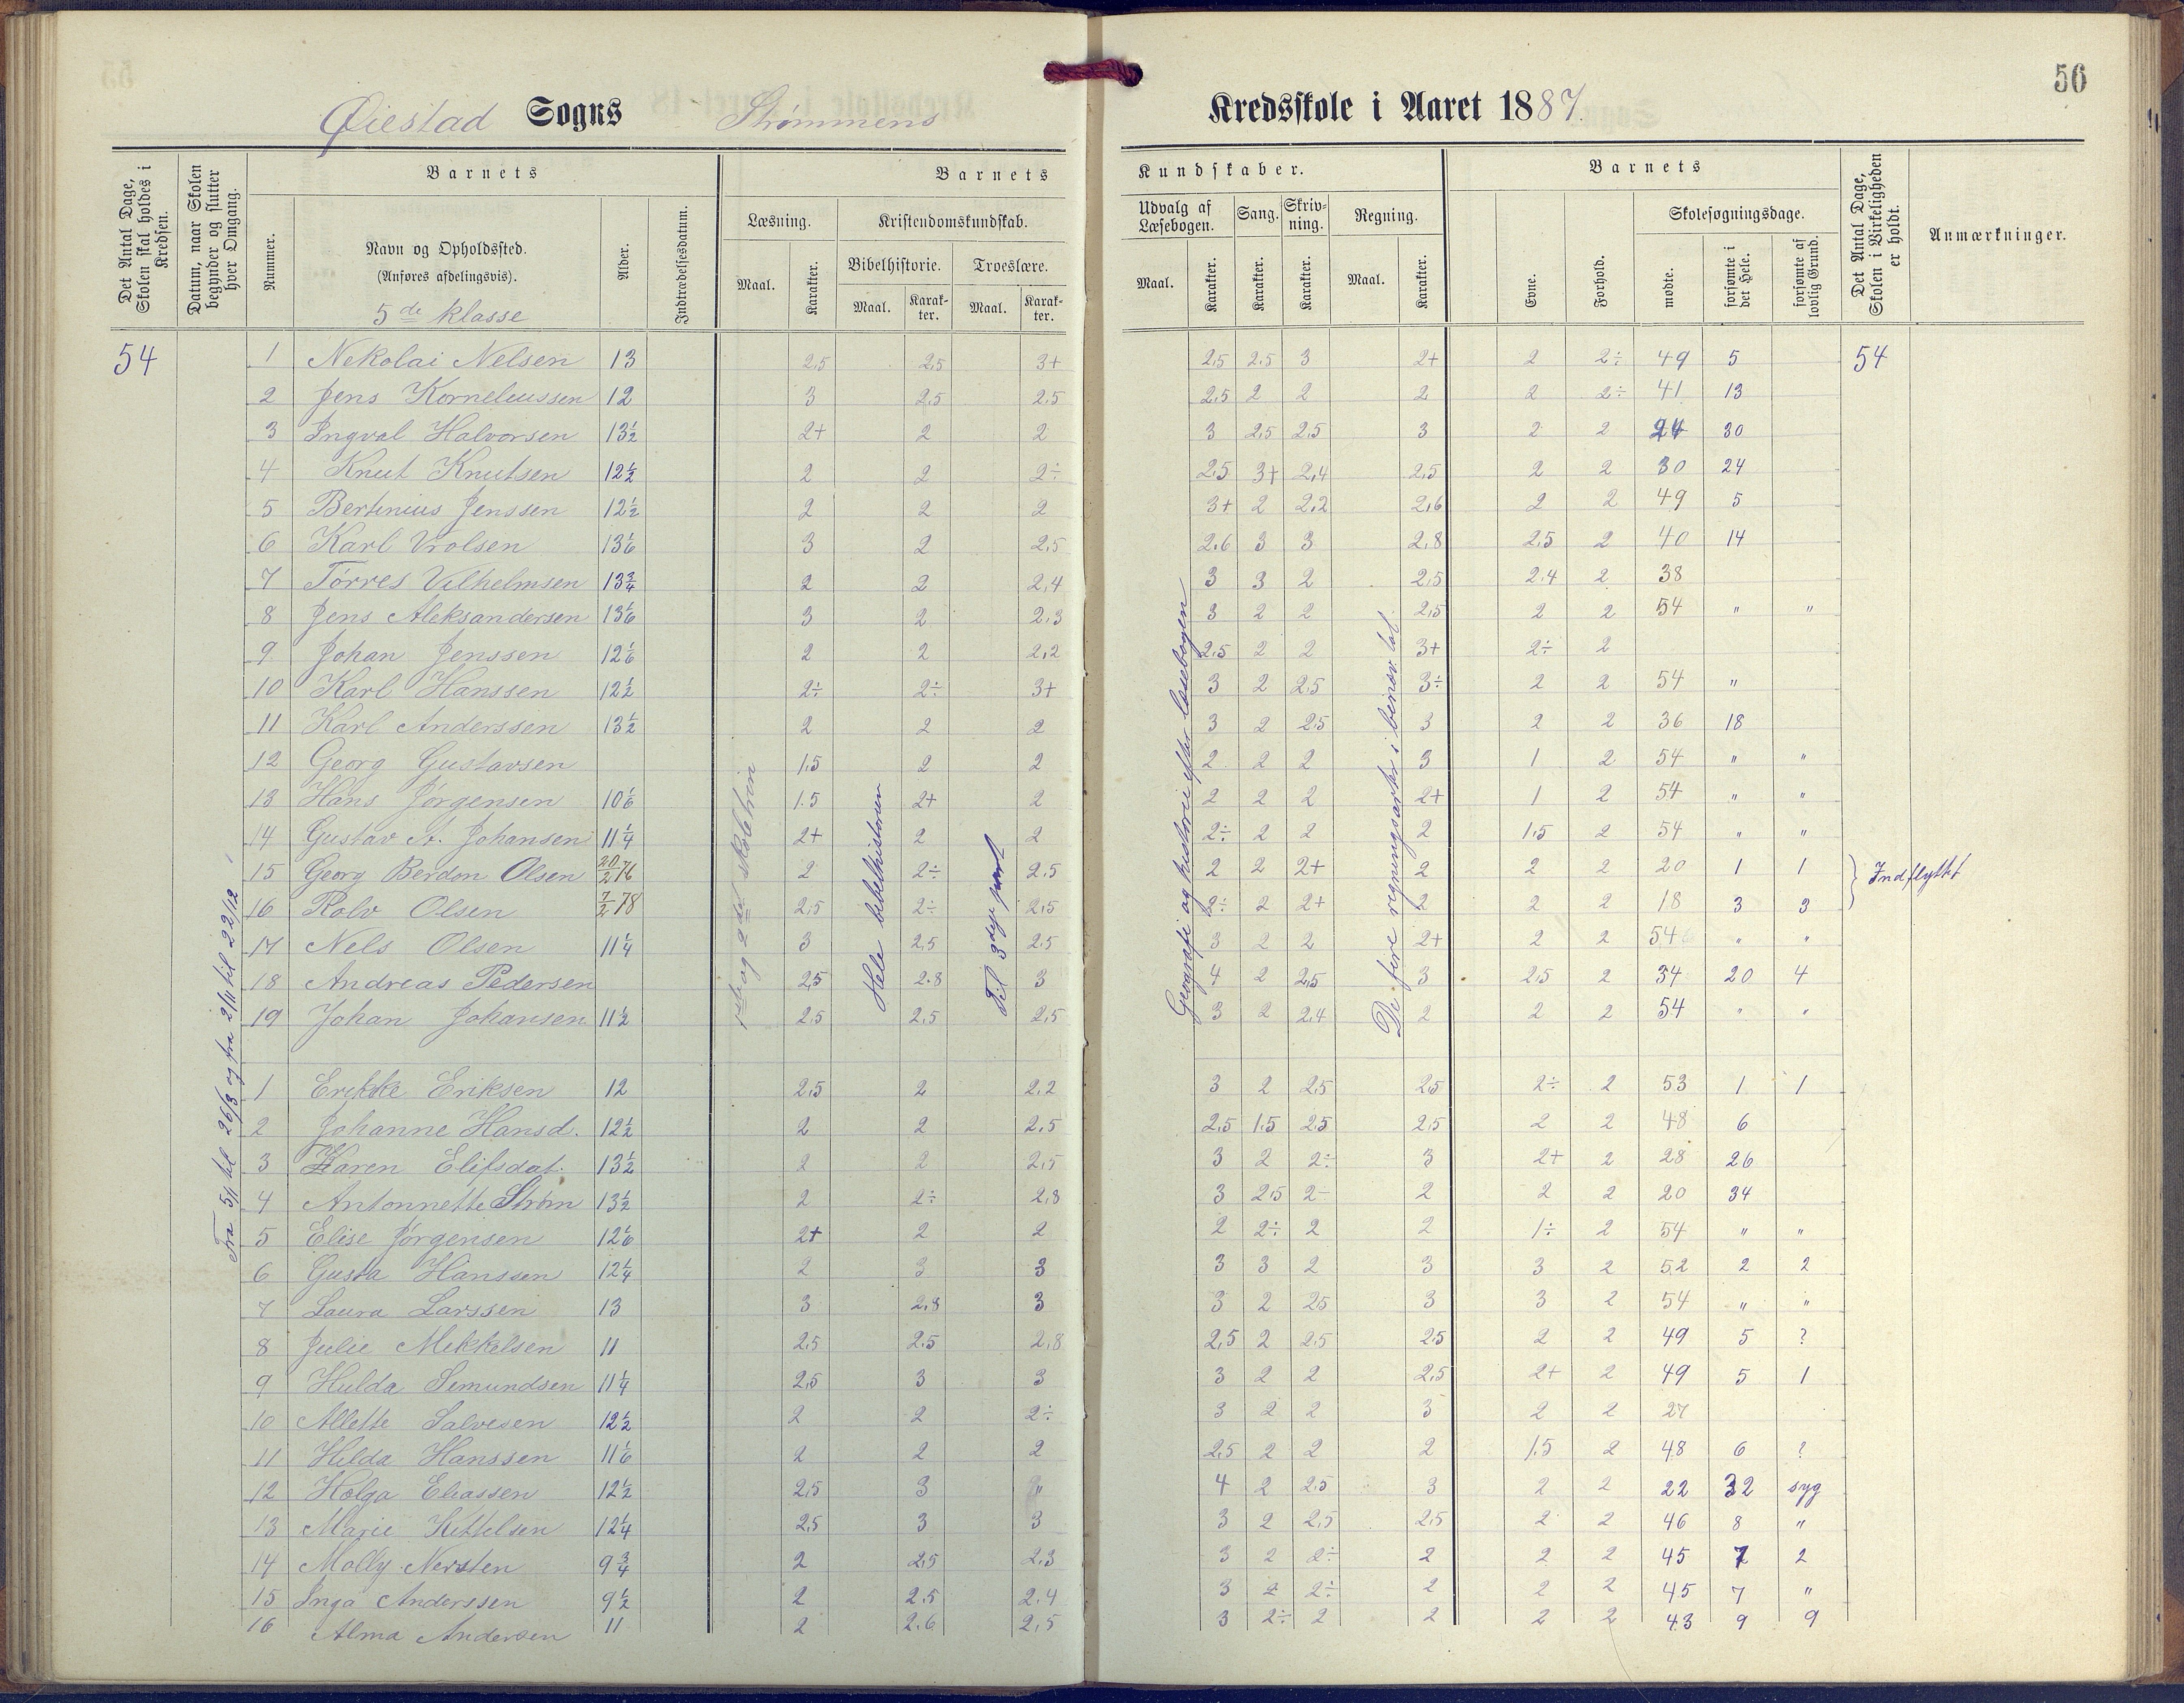 56
Øiestad Sogns Strømmens Kredsskole i Aaret 1887.
Det Antal Dage, Skolen skal holdes i Kredsen.
Datum, naar Skolen begynder og slutter hver Omgang.
Barnets
Nummer.
Navn og Opholdssted.
(Anføres afdelingsvis).
5 de klasse
Alder.
Indtrædelsesdatum.
Barnets Kundskaber.
Læsning.
Maal. Karakter.
Kristendomskundskab.
Bibelhistorie. Troeslære.
Maal. Karakter. Maal. Karakter.
Udvalg af Læsebogen.
Maal. Karakter.
Sang.
Karakter.
Skrivning.
Karakter.
Regning.
Maal. Karakter.
Barnets
Evne. Forhold.
Skolesøgningsdage.
mødte. forsømte i det Hele. forsømte af lovlig Grund.
Det Antal Dage, Skolen i Virkeligheden er holdt.
Anmærkninger.
54
Fra 5/1 til 26/3 og fra 2/11 til 22/12
1ste og 2den skoletrin
Hele bibelhistorien
Til 3dje part
Geografi og historie efter læsebogen
De fire regningsarter i benævnt tal
1 Nekolai Nelsen 13 2,5 2,5 3+ 2,5 2.5 3 2+ 2 2÷ 49 5 54
2 Jens Korneleussen 12 3 2,5 2.5 2,5 2 2 2 2 2÷ 41 13
3 Ingval Halvorsen 13½ 2+ 2 2 3 2,5 2,5 3 2 2 24 30
4 Knut Knutsen 12½ 2 2 2÷ 2,5 3+ 2,4 2,5 2 2 30 24
5 Bertinius Jenssen 12½ 2 2 2 3+ 2 2,2 2,6 2 2 49 5
6 Karl Vrolsen 13 1/6 3 2 2,5 2.6 3 3 2,8 2,5 2 40 14
7 Tørres Vilhelmsen 13¾ 2 2 2,4 3 3 2 2,5 2.4 2 38
8 Jens Aleksandersen 13 1/6 3 2 2.3 3 2 2 2,5 2 2 54 " "
9 Johan Jenssen 12 1/6 2 2 2,2 2,5 2 2 3+ 2÷ 2
10 Karl Hanssen 12½ 2÷ 2÷ 3+ 3 2 2,5 3÷ 2 2 54 "
11 Karl Anderssen 13½ 2 2 2 3 2 2,5 3 2 2 36 18
12 Georg Gustavsen 1,5 2 2 2 2 2 3 1 2 54 " "
13 Hans Jørgensen 10 1/6 1.5 2+ 2 2 2 2 2+ 1 2 54 " "
14 Gustav A. Johansen 11¼ 2+ 2 2 2÷ 2 2 2 1,5 2 54 " "
15 Georg Berdon Olsen 20/2 76 2 2÷ 2.5 2 2 2+ 2 2 2 20 1 1 } Indflyttet
16 Rolv Olsen 7/2 78 2,5 2÷ 2,5 2÷ 2 2+ 2 2 2 18 3 3
17 Nels Olsen 11¼ 3 2,5 2.5 3 2 2 2+ 2 2 54 " "
18 Andreas Pedersen 2,5 2.8 3 4 2 2,5 3 2,5 2 34 20 4
19 Johan Johansen 11½ 2,5 2,5 2,5 3 2 2,4 2 2 2 54 " "
1 Erikke Eriksen 12 2,5 2 2,2 3 2 2,5 2,5 2÷ 2 53 1 1
2 Johanne Hansd. 12½ 2 2 2,5 2,5 1.5 2.5 2,5 2 2 48 6
3 Karen Elifsdat. 13½ 2 2 2,5 3 2 2÷ 3 2+ 2 28 26
4 Antonnette Strøm 13½ 2 2÷ 2,8 3 2,5 2- 2 2 2 20 34
5 Elise Jørgensen 12 1/6 2+ 2 2 2 2÷ 2 2 1÷ 2 54 " "
6 Gusta Hanssen 12¼ 2 3 3 3 3 2 3 3 2 52 2 2
7 Laura Larssen 13 3 2,8 3 3 2 2,5 3 3 2 54 " "
8 Julie Mekkelsen 11 2,5 2.5 2,8 2,5 2 2,5 2,5 2 2 49 5 ?
9 Hulda Semundsen 11¼ 2,5 3 3 3 2 2 2,5 2+ 2 49 5 1
10 Allette Salvesen 12½ 2 2 2÷ 3 2 2 3 2 2 27
11 Hilda Hanssen 11 1/6 2 2 2 2,5 2 2 2 1.5 2 48 6 ?
12 Helga Eliassen 12½ 2,5 3 " 4 2 2,5 3 2 2 22 32 syg
13 Marie Kettelsen 12¼ 2,5 3 3 3 2 2,5 2,5 2 2 46 8 "
14 Molly Nersten 9¾ 2 2,5 2,3 3 2 2÷ 2 2 2 45 7 2
15 Inga Anderssen 9½ 2 2.5 2.4 3 2 2÷ 2 2 2 45 7 "
16 Alma Andersen 11 2 2.6 2,5 3 2÷ 2 2 2 2 43 9 9